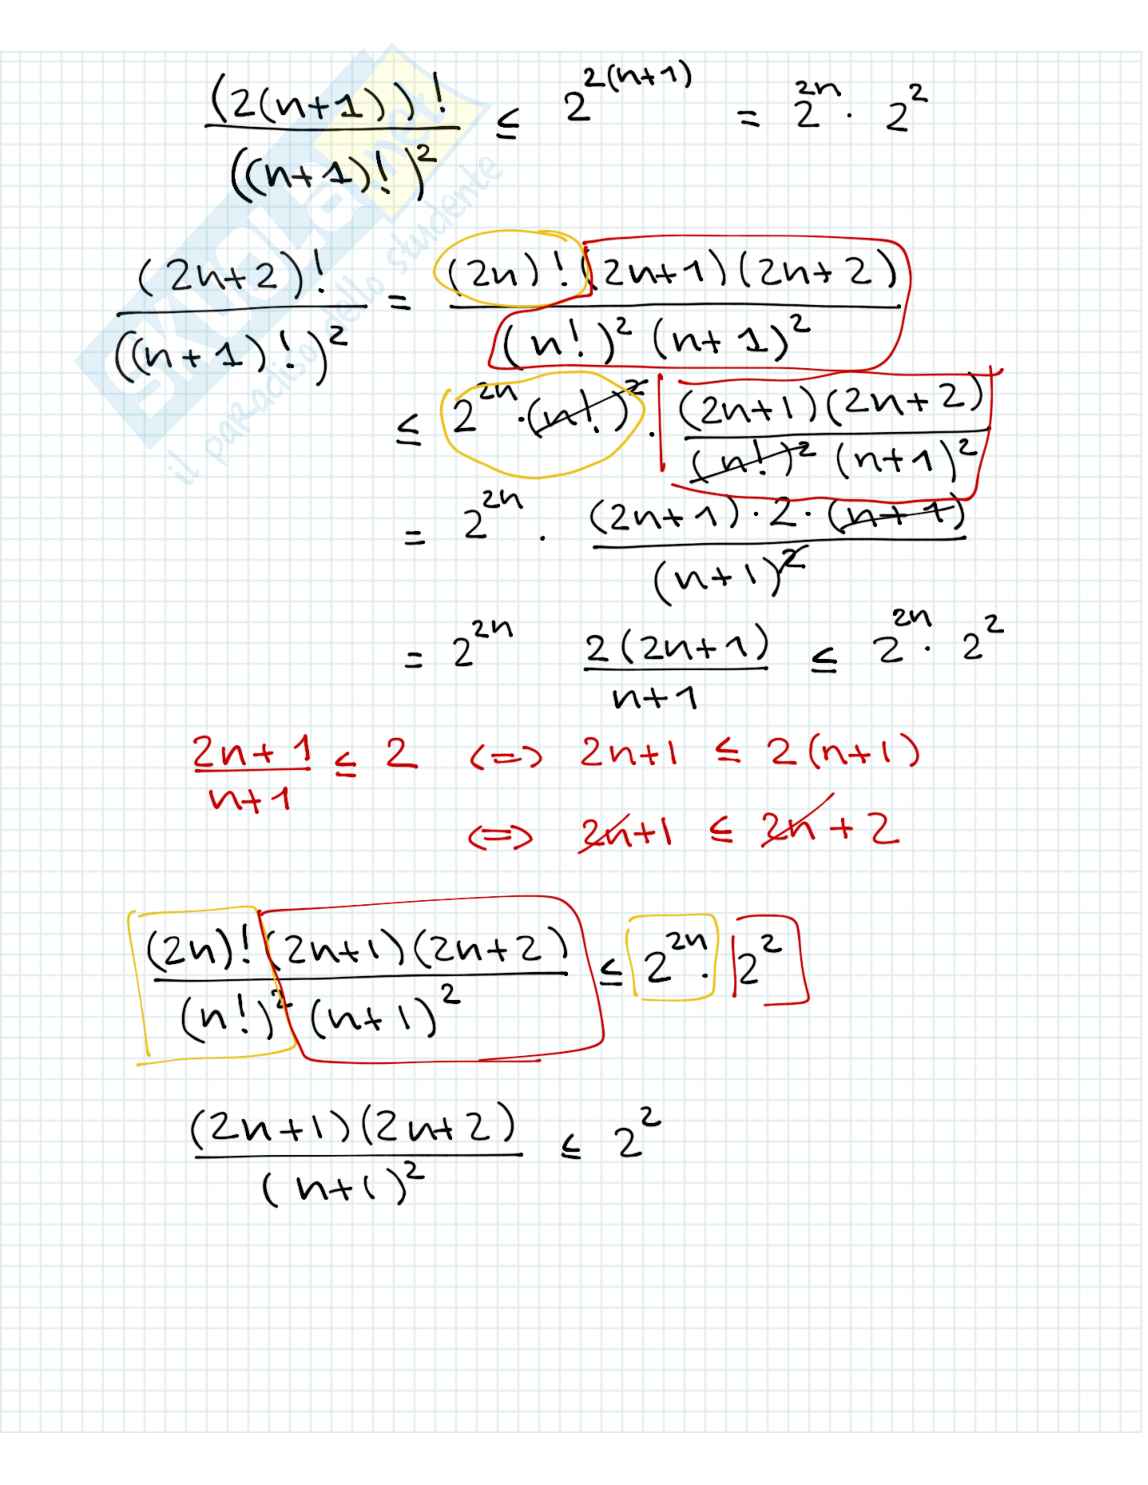 (2(n+1))! / ((n+1)!)² ≤ 2^{2(n+1)} = 2^{2n} · 2²
(2n+2)! / ((n+1)!)² = (2n)! (2n+1)(2n+2) / (n!)² (n+1)²
≤ 2^{2n} · (n!)² · (2n+1)(2n+2) / (n!)² (n+1)²
= 2^{2n} · (2n+1)·2·(n+1) / (n+1)²
= 2^{2n} 2(2n+1) / n+1 ≤ 2^{2n} · 2²
2n+1 / n+1 ≤ 2 <=> 2n+1 ≤ 2(n+1)
<=> 2n+1 ≤ 2n+2
(2n)! (2n+1)(2n+2) / (n!)² (n+1)² ≤ 2^{2n} · 2²
(2n+1)(2n+2) / (n+1)² ≤ 2²
SKUOLA.net
il paradiso dello studente